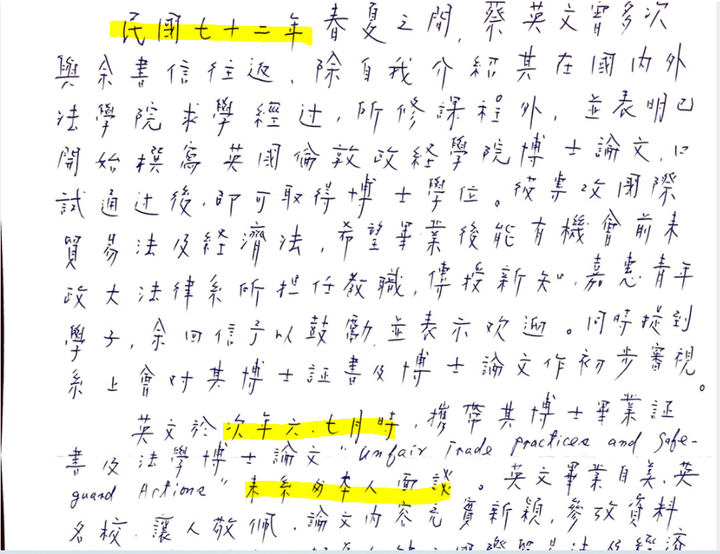 民國七十二年春夏之間,蔡英文曾多次
與余書信往返,除自我介紹其在國內外
法學院求學經过,所修課程外,並表明已
開始撰寫英國倫敦政経學院博士論文,口
試通过後,即可取得博士學位。彼專攻國際
貿易法及経濟法,希望畢業後能有機會前來
政大法律系所担任教職,傳授新知,嘉惠青年
學子,余回信予以鼓勵,並表示欢迎。同時提到
系上會对其博士証書及博士論文作初步審視。
英文於次年六、七月時,携帶其博士畢業証
書及法學博士論文"Unfair Trade practices and Safe-
guard Actions"來系內本人面談。英文畢業自美、英
名校,讓人敬佩,論文內容充實新穎,參攷資料